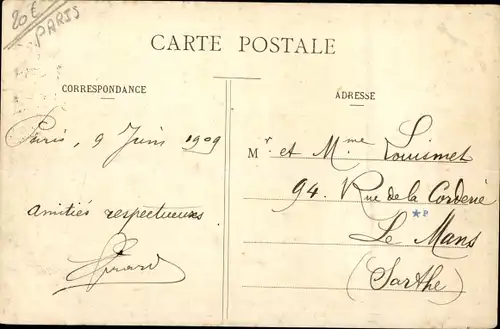 20€
PARIS
CARTE POSTALE
CORRESPONDANCE
ADRESSE
Paris, 9 Juin 1909
Mr. et Mme Louismet
94. Rue de la Corderie
*P
amitiés respectueuses
Le Mans
Girard
(Sarthe)